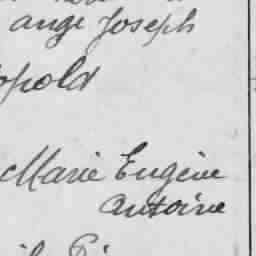 ange Joseph
opold
Marie Eugène
Antoine